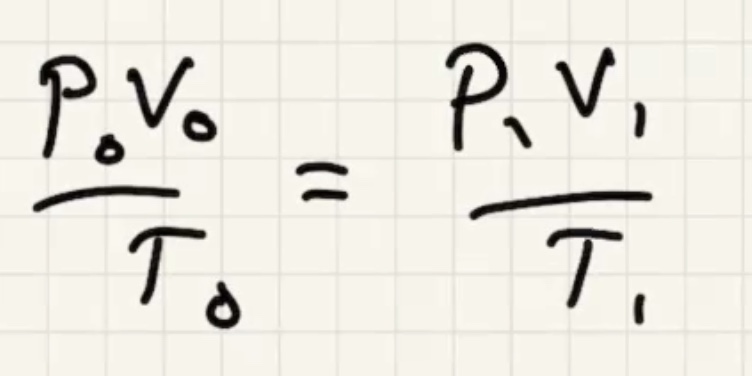 P₀V₀/T₀ = P₁V₁/T₁